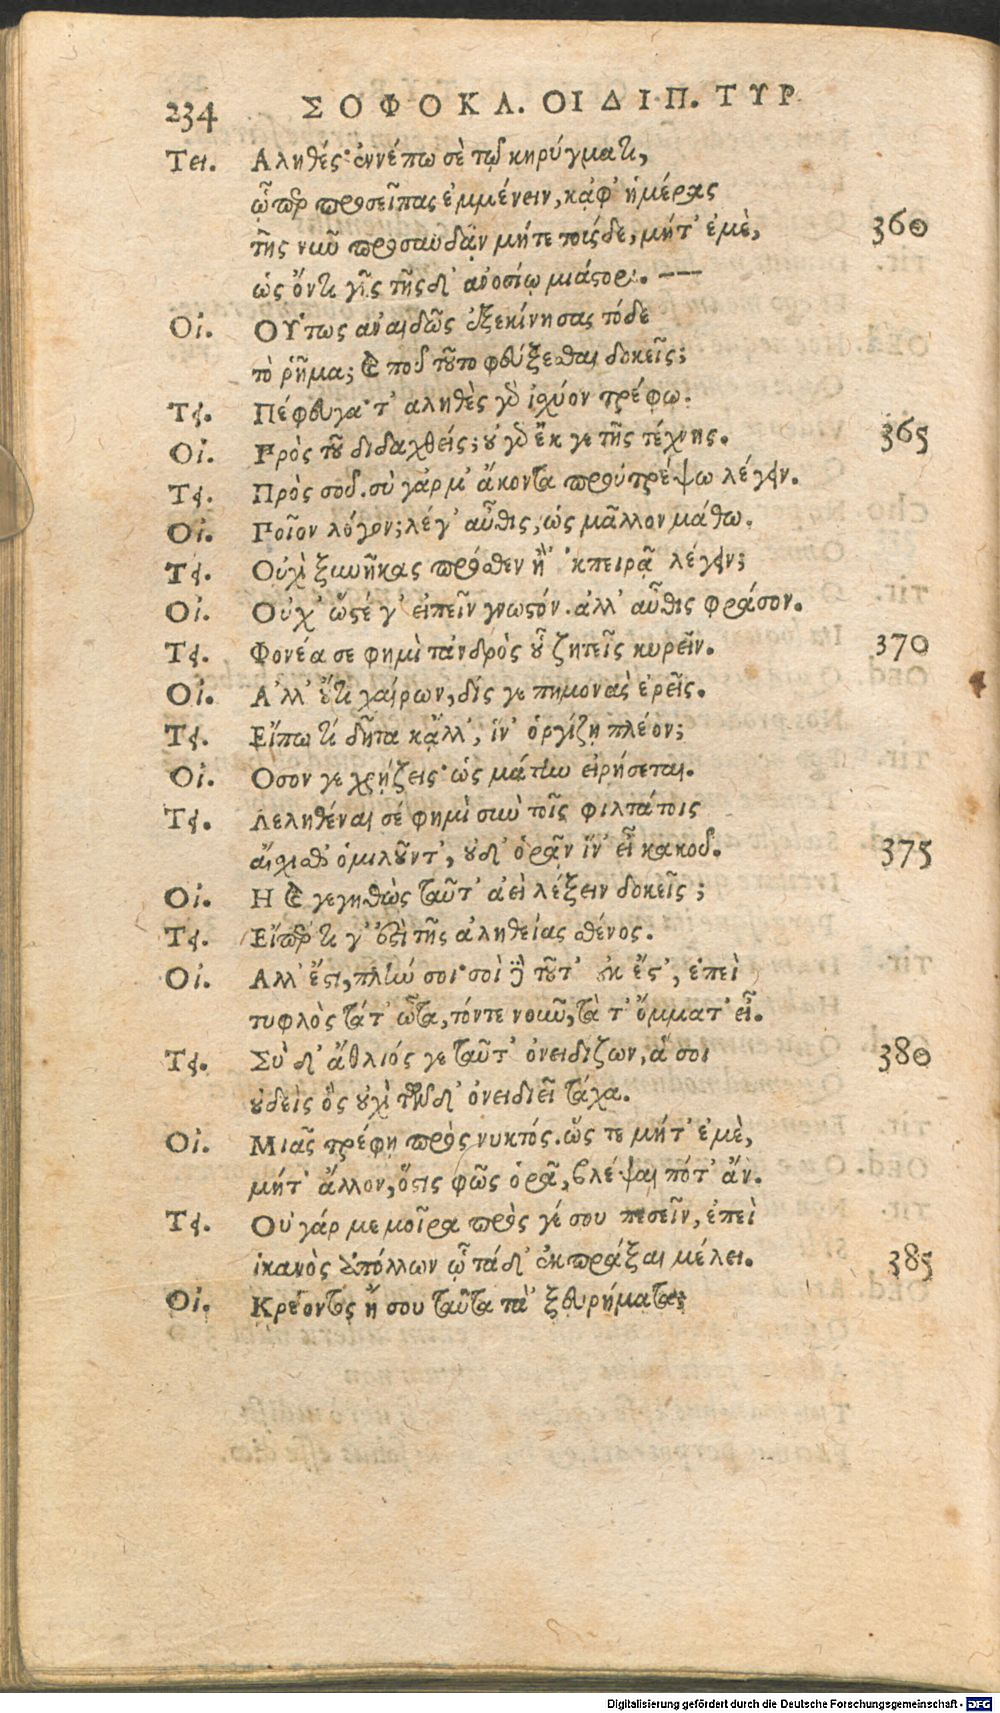 234 ΣΟΦΟΚΛ. ΟΙΔΙΠ. ΤΥΡ
Τει. Αληθές· ἐννέπω σὲ τῷ κηρύγματι,
ᾧπερ προσεῖπας ἐμμένειν, κᾀφ᾽ ἡμέρας
τῆς νιιῦ προσαυδᾷν μήτε τούςδε, μήτ᾽ ἐμὲ, 360
ὡς ὄντι γῆς τῆςδ᾽ ἀνοσίῳ μιάστορι. —
Οἰ. Οὕτως ἀναιδῶς ἐξεκίνησας τόδε
τὸ ῥῆμα; καὶ ποῦ τοῦτο φεύξεσθαι δοκεῖς;
Τει. Πέφευγα· τ᾽ αληθὲς γὸ ἰσχύον τρέφω.
Οἰ. Πρὸς τοῦ διδαχθείς; οὐ γὸ ἔκ γε τῆς τέχνης. 365
Τει. Πρὸς σοῦ. σὺ γάρ μ᾽ ἄκοντα προύτρέψω λέγειν.
Οἰ. Ποῖον λόγον; λέγ᾽ αὖθις, ὡς μᾶλλον μάθω.
Τει. Οὐχὶ ξυνῆκας πρόσθεν ἢ ᾽κπειρᾷ λέγειν;
Οἰ. Οὐχ᾽ ὥστέ γ᾽ εἰπεῖν γνωστόν. ἀλλ᾽ αὖθις φράσον.
Τει. Φονέα σε φημὶ τἀνδρὸς οὗ ζητεῖς κυρεῖν. 370
Οἰ. Α᾽λλ᾽ οὔτι χαίρων, δίς γε πημονὰς ἐρεῖς.
Τει. Εἴπω τί δῆτα κἄλλ᾽, ἵν᾽ ὀργίζῃ πλέον;
Οἰ. Οσον γε χρῄζεις· ὡς μάτην εἰρήσεται.
Τει. Λεληθέναι σέ φημὶ σὺν τοῖς φιλτάτοις
αἴσχισθ᾽ ὁμιλοῦντ᾽, οὐδ᾽ ὁρᾶν ἵν᾽ εἶ κακοῦ. 375
Οἰ. Η καὶ γεγηθὼς ταῦτ᾽ ἀεὶ λέξειν δοκεῖς;
Τει. Εἴπερ τι γ᾽ ἐστὶ τῆς ἀληθείας σθένος.
Οἰ. Αλλ᾽ ἔστι, πλὴν σοι· σοὶ δὲ τοῦτ᾽ οὐκ ἔστ᾽, ἐπεὶ
τυφλὸς τάτ᾽ ὦτα, τόντε νοιῦν, τὰ τ᾽ ὄμματ᾽ εἶ.
Τει. Σὺ δ᾽ ἄθλιός γε ταῦτ᾽ ὀνειδίζων, ἅ σοι 380
οὐδεὶς ὃς οὐχὶ τῶνδ᾽ ὀνειδιεῖ τάχα.
Οἰ. Μιᾶς τρέφῃ πρὸς νυκτός. ὥς τε μήτ᾽ ἐμὲ,
μήτ᾽ ἄλλον, ὅστις φῶς ὁρᾷ, βλέψαι πότ᾽ ἄν.
Τει. Οὐ γάρ με μοῖρα πρὸς γέ σου πεσεῖν, ἐπεὶ
ἱκανὸς Ἀπόλλων ᾧ τάδ᾽ ἐκπράξαι μέλει. 385
Οἰ. Κρέοντος ἤ σου ταῦτα τὰ ξευρήματα;
Digitalisierung gefördert durch die Deutsche Forschungsgemeinschaft - DFG